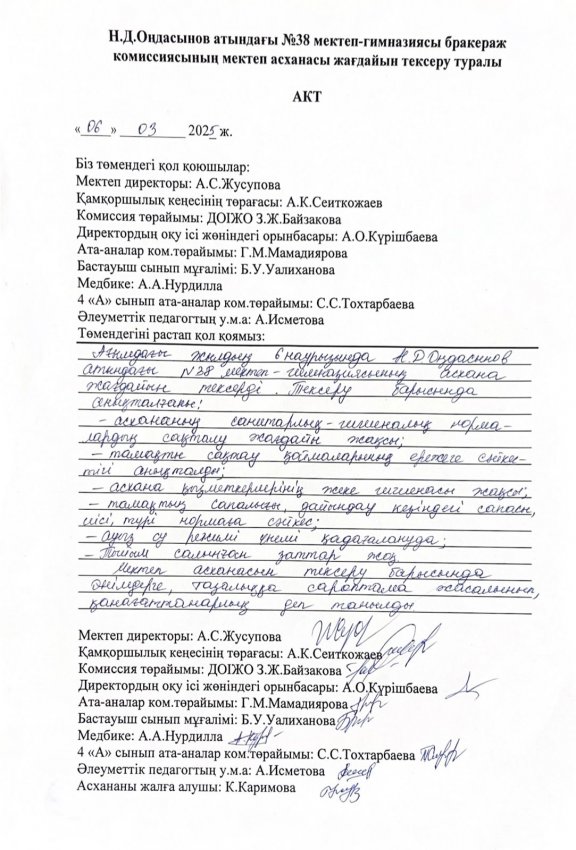 Н.Д.Оңдасынов атындағы №38 мектеп-гимназиясы бракераж
комиссиясының мектеп асханасы жағдайын тексеру туралы
АКТ
«06» 03 2025 ж.
Біз төмендегі қол қоюшылар:
Мектеп директоры: А.С.Жусупова
Қамқоршылық кеңесінің төрағасы: А.К.Сеиткожаев
Комиссия төрайымы: ДОІЖО З.Ж.Байзакова
Директордың оқу ісі жөніндегі орынбасары: А.О.Күрішбаева
Ата-аналар ком.төрайымы: Г.М.Мамадиярова
Бастауыш сынып мұғалімі: Б.У.Уалиханова
Медбике: А.А.Нурдилла
4 «А» сынып ата-аналар ком.төрайымы: С.С.Тохтарбаева
Әлеуметтік педагогтың у.м.а: А.Исметова
Төмендегіні растап қол қоямыз:
Ағымдағы жылдың 6 наурызында Н.Д Оңдасынов
атындағы №38 мектеп-гимназиясының асхана
жағдайын тексерді. Тексеру барысында
анықталғаны:
- асхананың санитарлық-гигиеналық норма-
лардың сақталу жағдайы жақсы;
- тамақты сақтау қоймаларының ережеге сәйкес-
тігі анықталды;
- асхана қызметкерлерінің жеке гигиенасы жақсы;
- тамақтың сапалығы, дайындау кезіндегі сапасы,
иісі, түрі нормаға сәйкес;
- ауыз су режимі үнемі қадағалануда;
- Тыйым салынған заттар жоқ
Мектеп асханасын тексеру барысында
өнімдерге, тазалыққа сараптама жасалынып,
қанағаттанарлық деп танылды
Мектеп директоры: А.С.Жусупова
Қамқоршылық кеңесінің төрағасы: А.К.Сеиткожаев
Комиссия төрайымы: ДОІЖО З.Ж.Байзакова
Директордың оқу ісі жөніндегі орынбасары: А.О.Күрішбаева
Ата-аналар ком.төрайымы: Г.М.Мамадиярова
Бастауыш сынып мұғалімі: Б.У.Уалиханова
Медбике: А.А.Нурдилла
4 «А» сынып ата-аналар ком.төрайымы: С.С.Тохтарбаева
Әлеуметтік педагогтың у.м.а: А.Исметова
Асхананы жалға алушы: К.Каримова